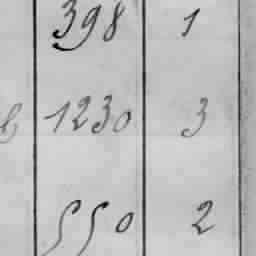 398 1
1230 3
550 2